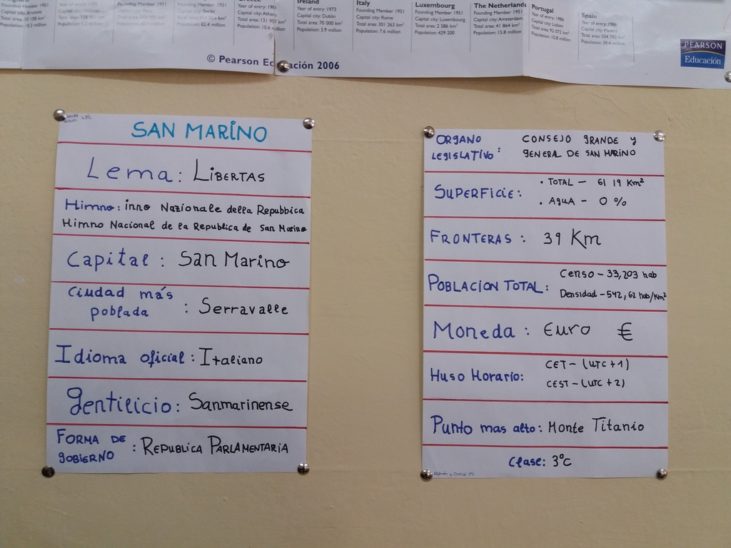 Ireland
Year of entry: 1973
Capital city: Dublin
Total area: 70 000 km²
Population: 3.9 million
Italy
Founding Member 1951
Capital city: Rome
Total area: 301 263 km²
Population: 57.6 million
Luxembourg
Founding Member 1951
Capital city: Luxembourg
Total area: 2 586 km²
Population: 429 200
The Netherlands
Founding Member 1951
Capital city: Amsterdam
Total area: 41 864 km²
Population: 15.8 million
Portugal
Year of entry: 1986
Capital city: Lisbon
Spain
Year of entry: 1986
© Pearson Educación 2006
PEARSON
Educación
SAN MARINO
Lema: LIBERTAS
Himno: inno Nazionale della Repubbica
Himno Nacional de la Republica de San Marino
Capital: San Marino
Ciudad más
poblada : Serravalle
Idioma oficial: Italiano
gentilicio: Sanmarinense
FORMA DE
gOBIERNO : REPUBLICA PARLAMENTARIA
ORGANO CONSEJO gRANDE y
LEgISLATIVO: gENERAL DE SAN MARINO
SUPERFICIE: • TOTAL — 61 19 Km²
• AgUA — 0 %
FRONTERAS: 39 Km
POBLACION TOTAL: Censo — 33,203 hab
Densidad — 542,62 hab/Km²
Moneda: Euro €
Huso Horario: CET — (UTC +1)
CEST — (UTC +2)
Punto mas alto: Monte Titanio
Clase: 3°C